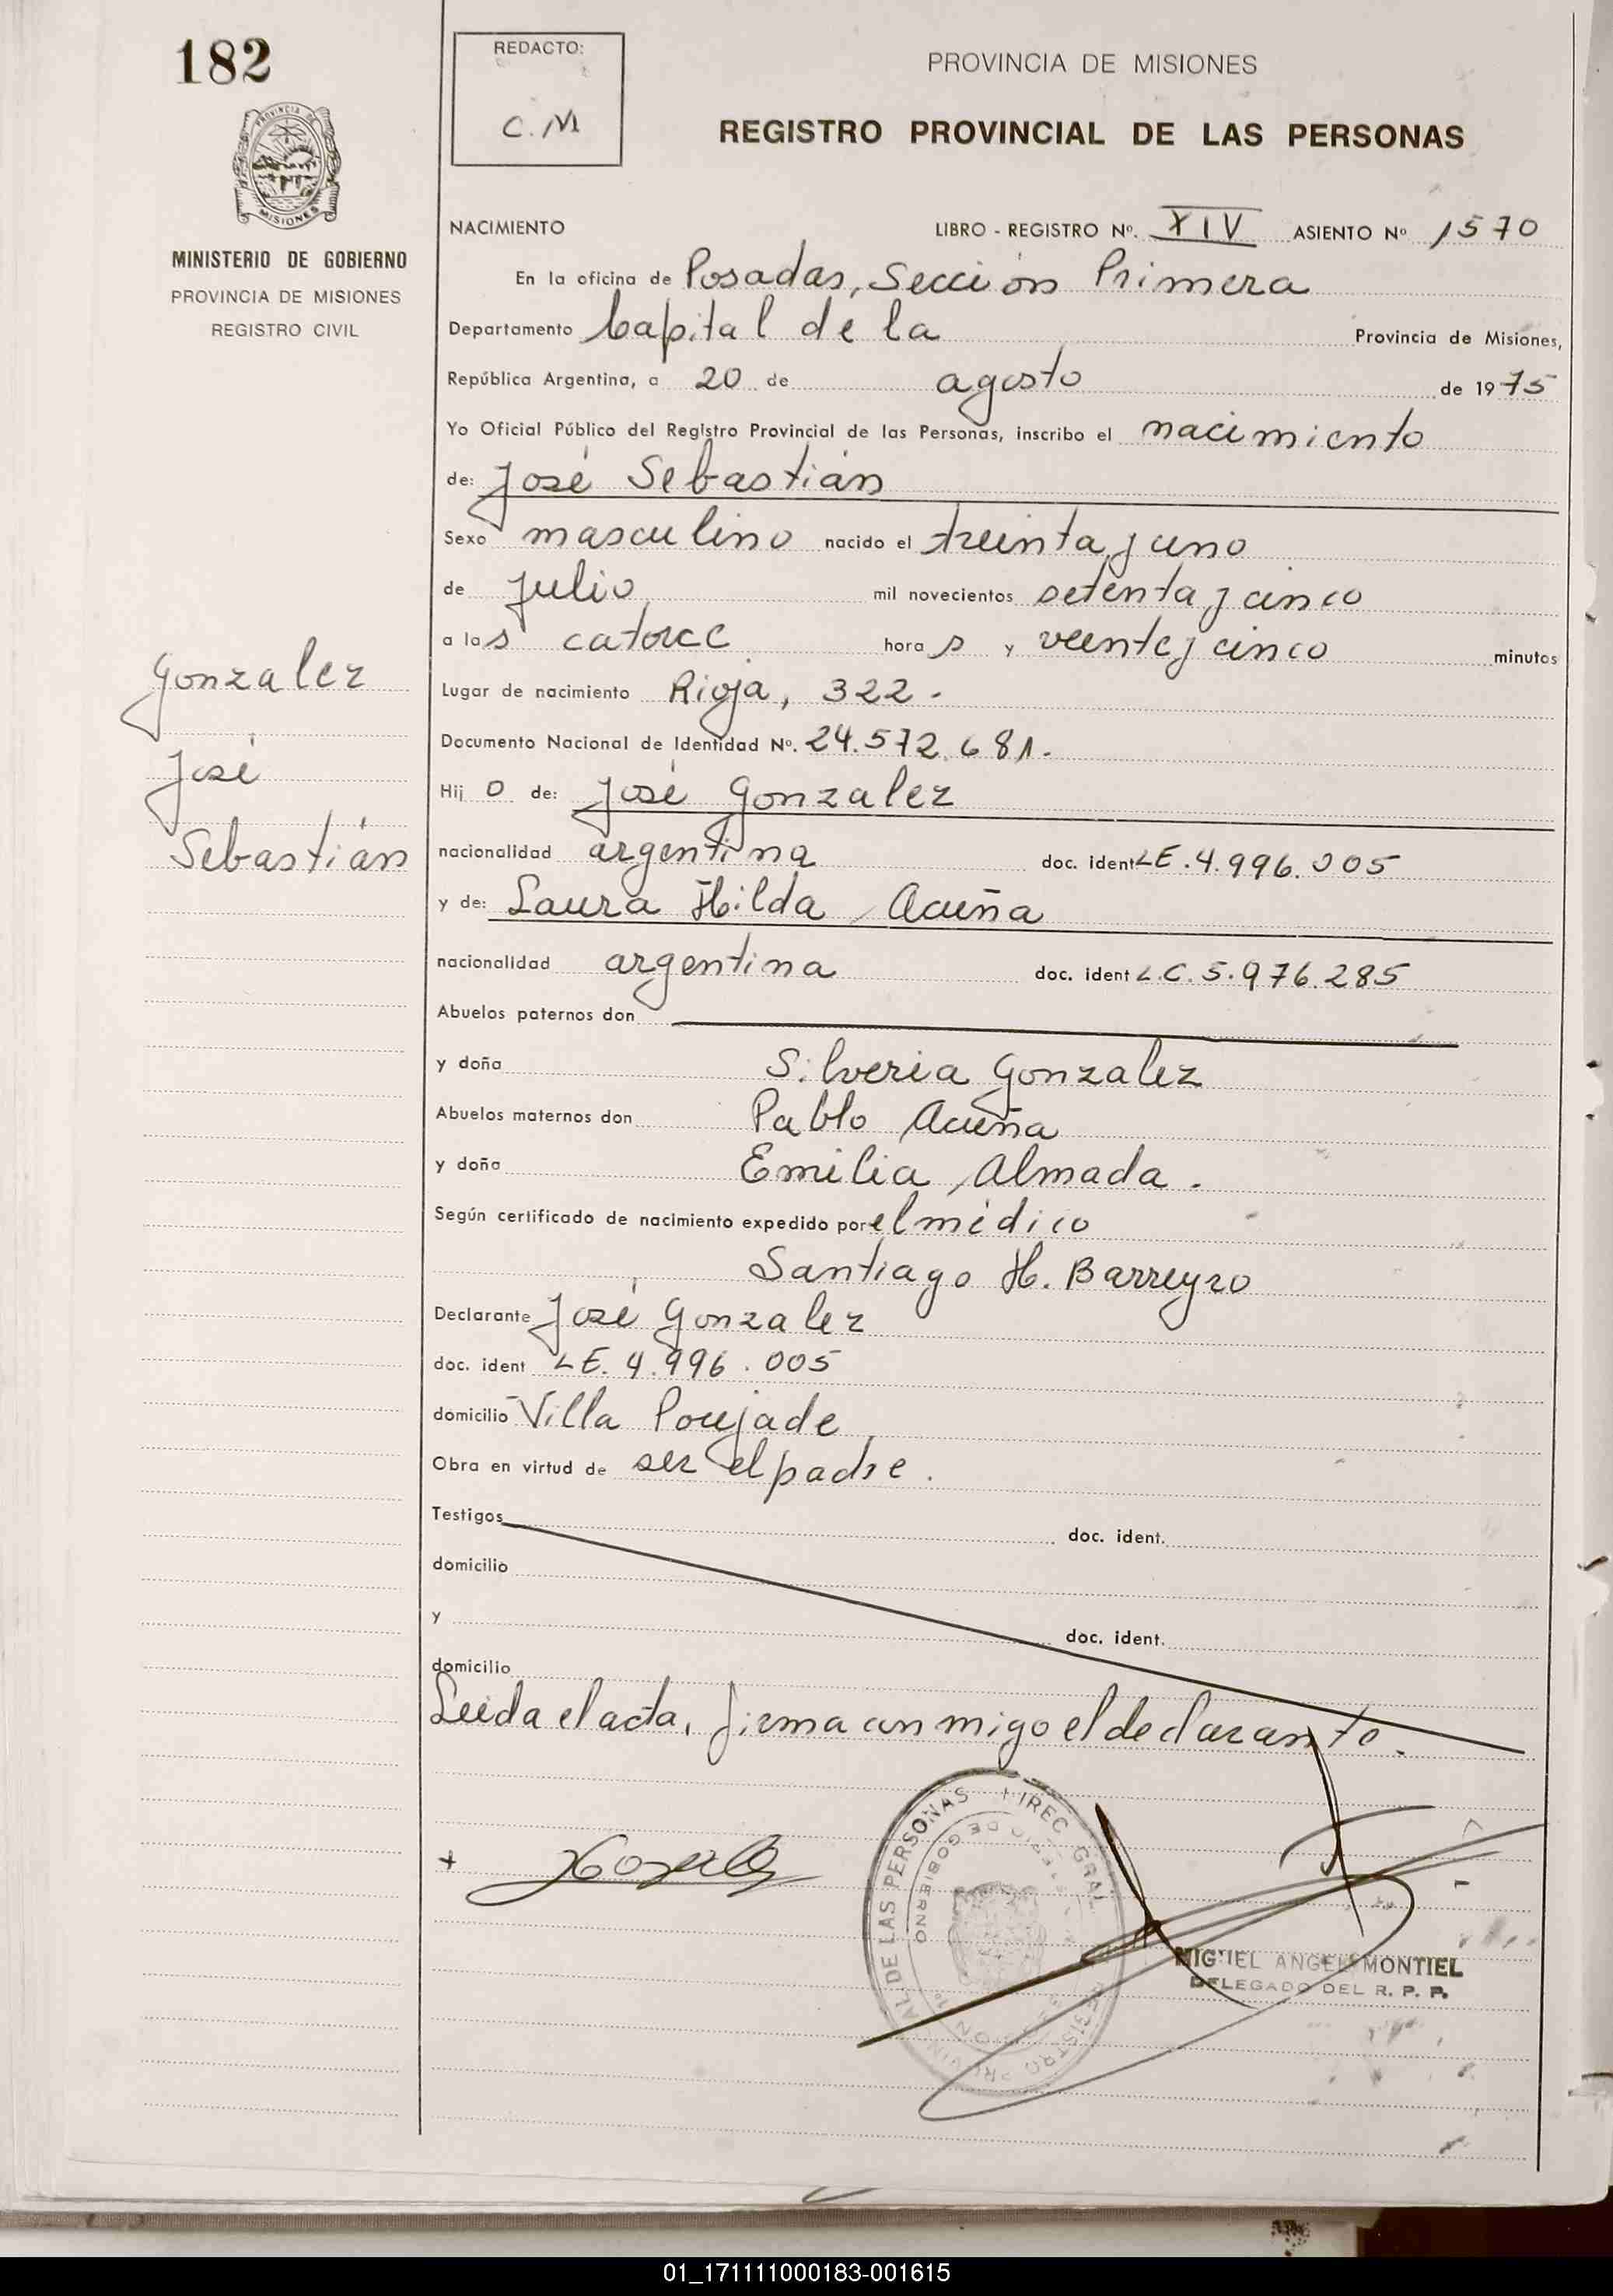 182
REDACTO:
C.M
PROVINCIA DE MISIONES
REGISTRO PROVINCIAL DE LAS PERSONAS
MISIONES
MINISTERIO DE GOBIERNO
PROVINCIA DE MISIONES
REGISTRO CIVIL
NACIMIENTO LIBRO - REGISTRO Nº. XIV ASIENTO Nº 1570
En la oficina de Posadas, Sección Primera
Departamento Capital de la Provincia de Misiones,
República Argentina, a 20 de agosto de 1975
Yo Oficial Público del Registro Provincial de las Personas, inscribo el nacimiento
de: José Sebastián
Sexo masculino nacido el treinta y uno
de julio mil novecientos setenta y cinco
a las catorce horas y veinte y cinco minutos
Lugar de nacimiento Rioja, 322.
Documento Nacional de Identidad Nº. 24.572.681.
Hijo de: José Gonzalez
nacionalidad argentina doc. ident LE. 4.996.005
y de: Laura Hilda Acuña
nacionalidad argentina doc. ident L.C. 5.976.285
Abuelos paternos don
y doña Silveria Gonzalez
Abuelos maternos don Pablo Acuña
y doña Emilia Almada.
Según certificado de nacimiento expedido por el médico
Santiago H. Barreyro
Declarante José Gonzalez
doc. ident LE. 4.996.005
domicilio Villa Poujade
Obra en virtud de ser el padre.
Testigos doc. ident.
domicilio
y doc. ident.
domicilio
Leida el acta, firma conmigo el declarante.
Gonzalez
José
Sebastián
MIGUEL ANGEL MONTIEL
DELEGADO DEL R. P. P.
01_171111000183-001615